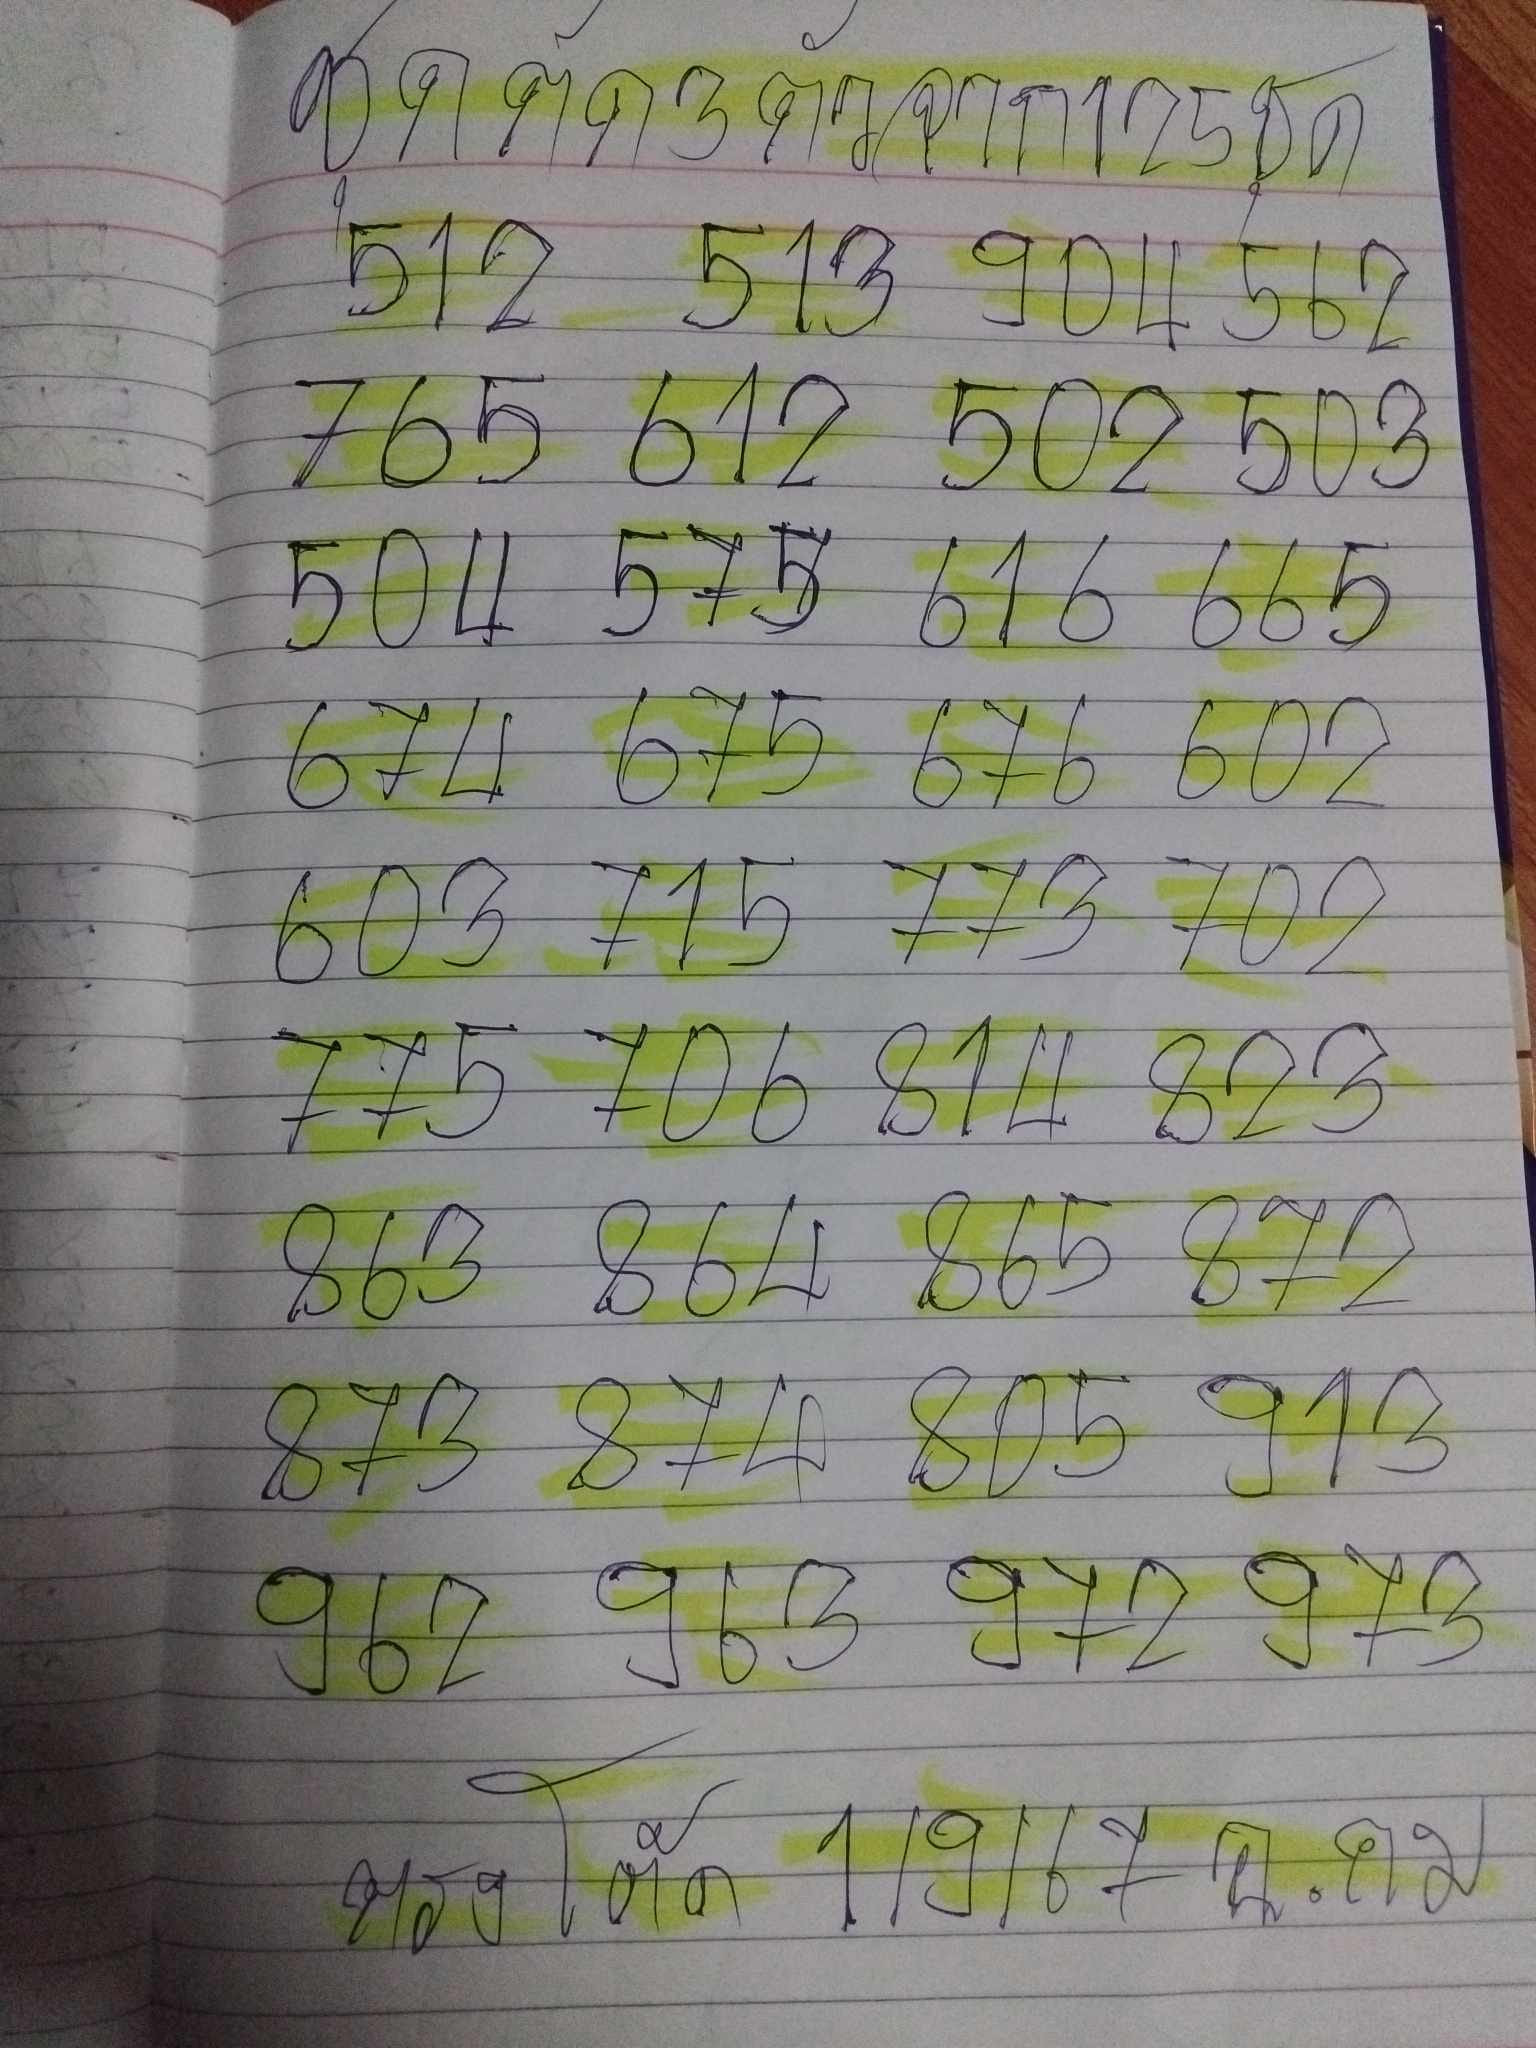 ชุดคัด3ตัวจาก125ชุด
512 513 904 562
765 612 502 503
504 575 616 665
674 675 676 602
603 715 773 702
775 706 814 823
863 864 865 872
873 874 805 913
962 963 972 973
1/9/67